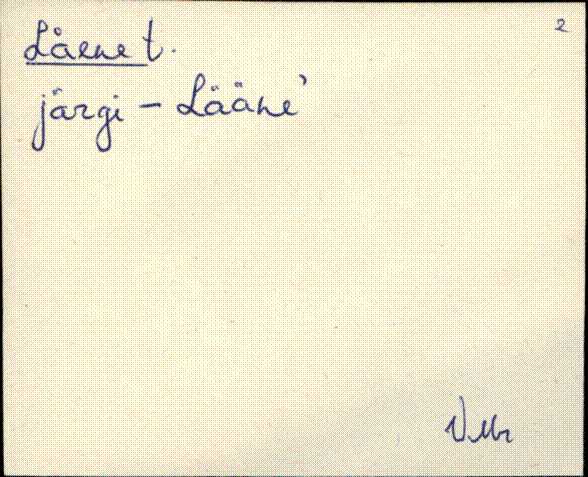 2
Läene t.
järgi – Lääne'
VMr